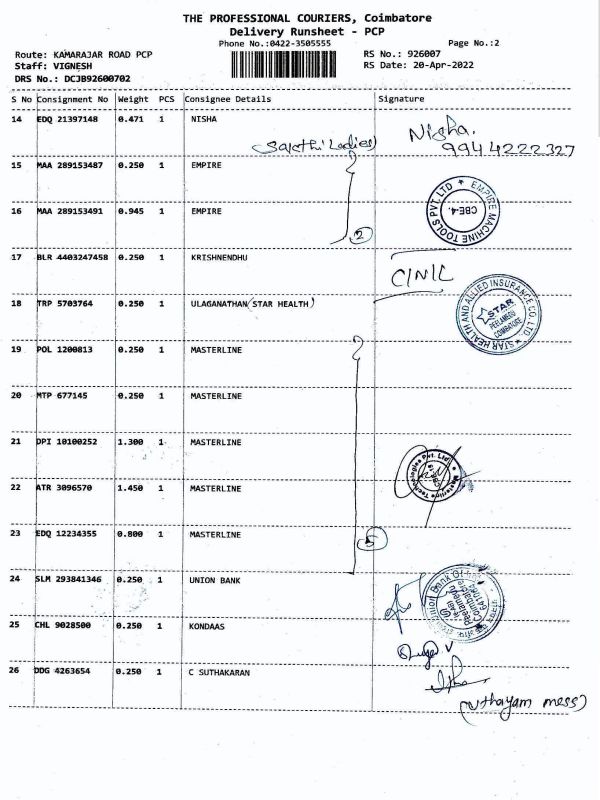 THE PROFESSIONAL COURIERS, Coimbatore
Delivery Runsheet - PCP
Phone No.:0422-3505555
Page No.:2
Route: KAMARAJAR ROAD PCP
RS No.: 926007
Staff: VIGNESH
RS Date: 20-Apr-2022
DRS No.: DCJB92600702
S No Consignment No Weight PCS Consignee Details Signature
14 EDQ 21397148 0.471 1 NISHA
Nisha.
9944222327
15 MAA 289153487 0.250 1 EMPIRE
EMPIRE MACHINE TOOLS PVT. LTD
CBE-4.
16 MAA 289153491 0.945 1 EMPIRE
2
17 BLR 4403247458 0.250 1 KRISHNENDHU
18 TRP 5703764 0.250 1 ULAGANATHAN(STAR HEALTH)
STAR HEALTH AND ALLIED INSURANCE CO. LTD.
STAR
COIMBATORE
19 POL 1200813 0.250 1 MASTERLINE
20 MTP 677145 0.250 1 MASTERLINE
21 DPI 10100252 1.300 1 MASTERLINE
22 ATR 3096570 1.450 1 MASTERLINE
Masterline Technologies Pvt. Ltd.
23 EDQ 12234355 0.800 1 MASTERLINE
5
24 SLM 293841346 0.250 1 UNION BANK
Union Bank Of
25 CHL 9028500 0.250 1 KONDAAS
26 DDG 4263654 0.250 1 C SUTHAKARAN
(uthayam mess)